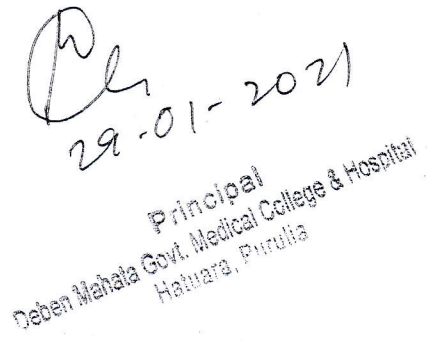 29-01-2021
Principal
Deben Mahata Govt. Medical College & Hospital
Hatuara, Purulia